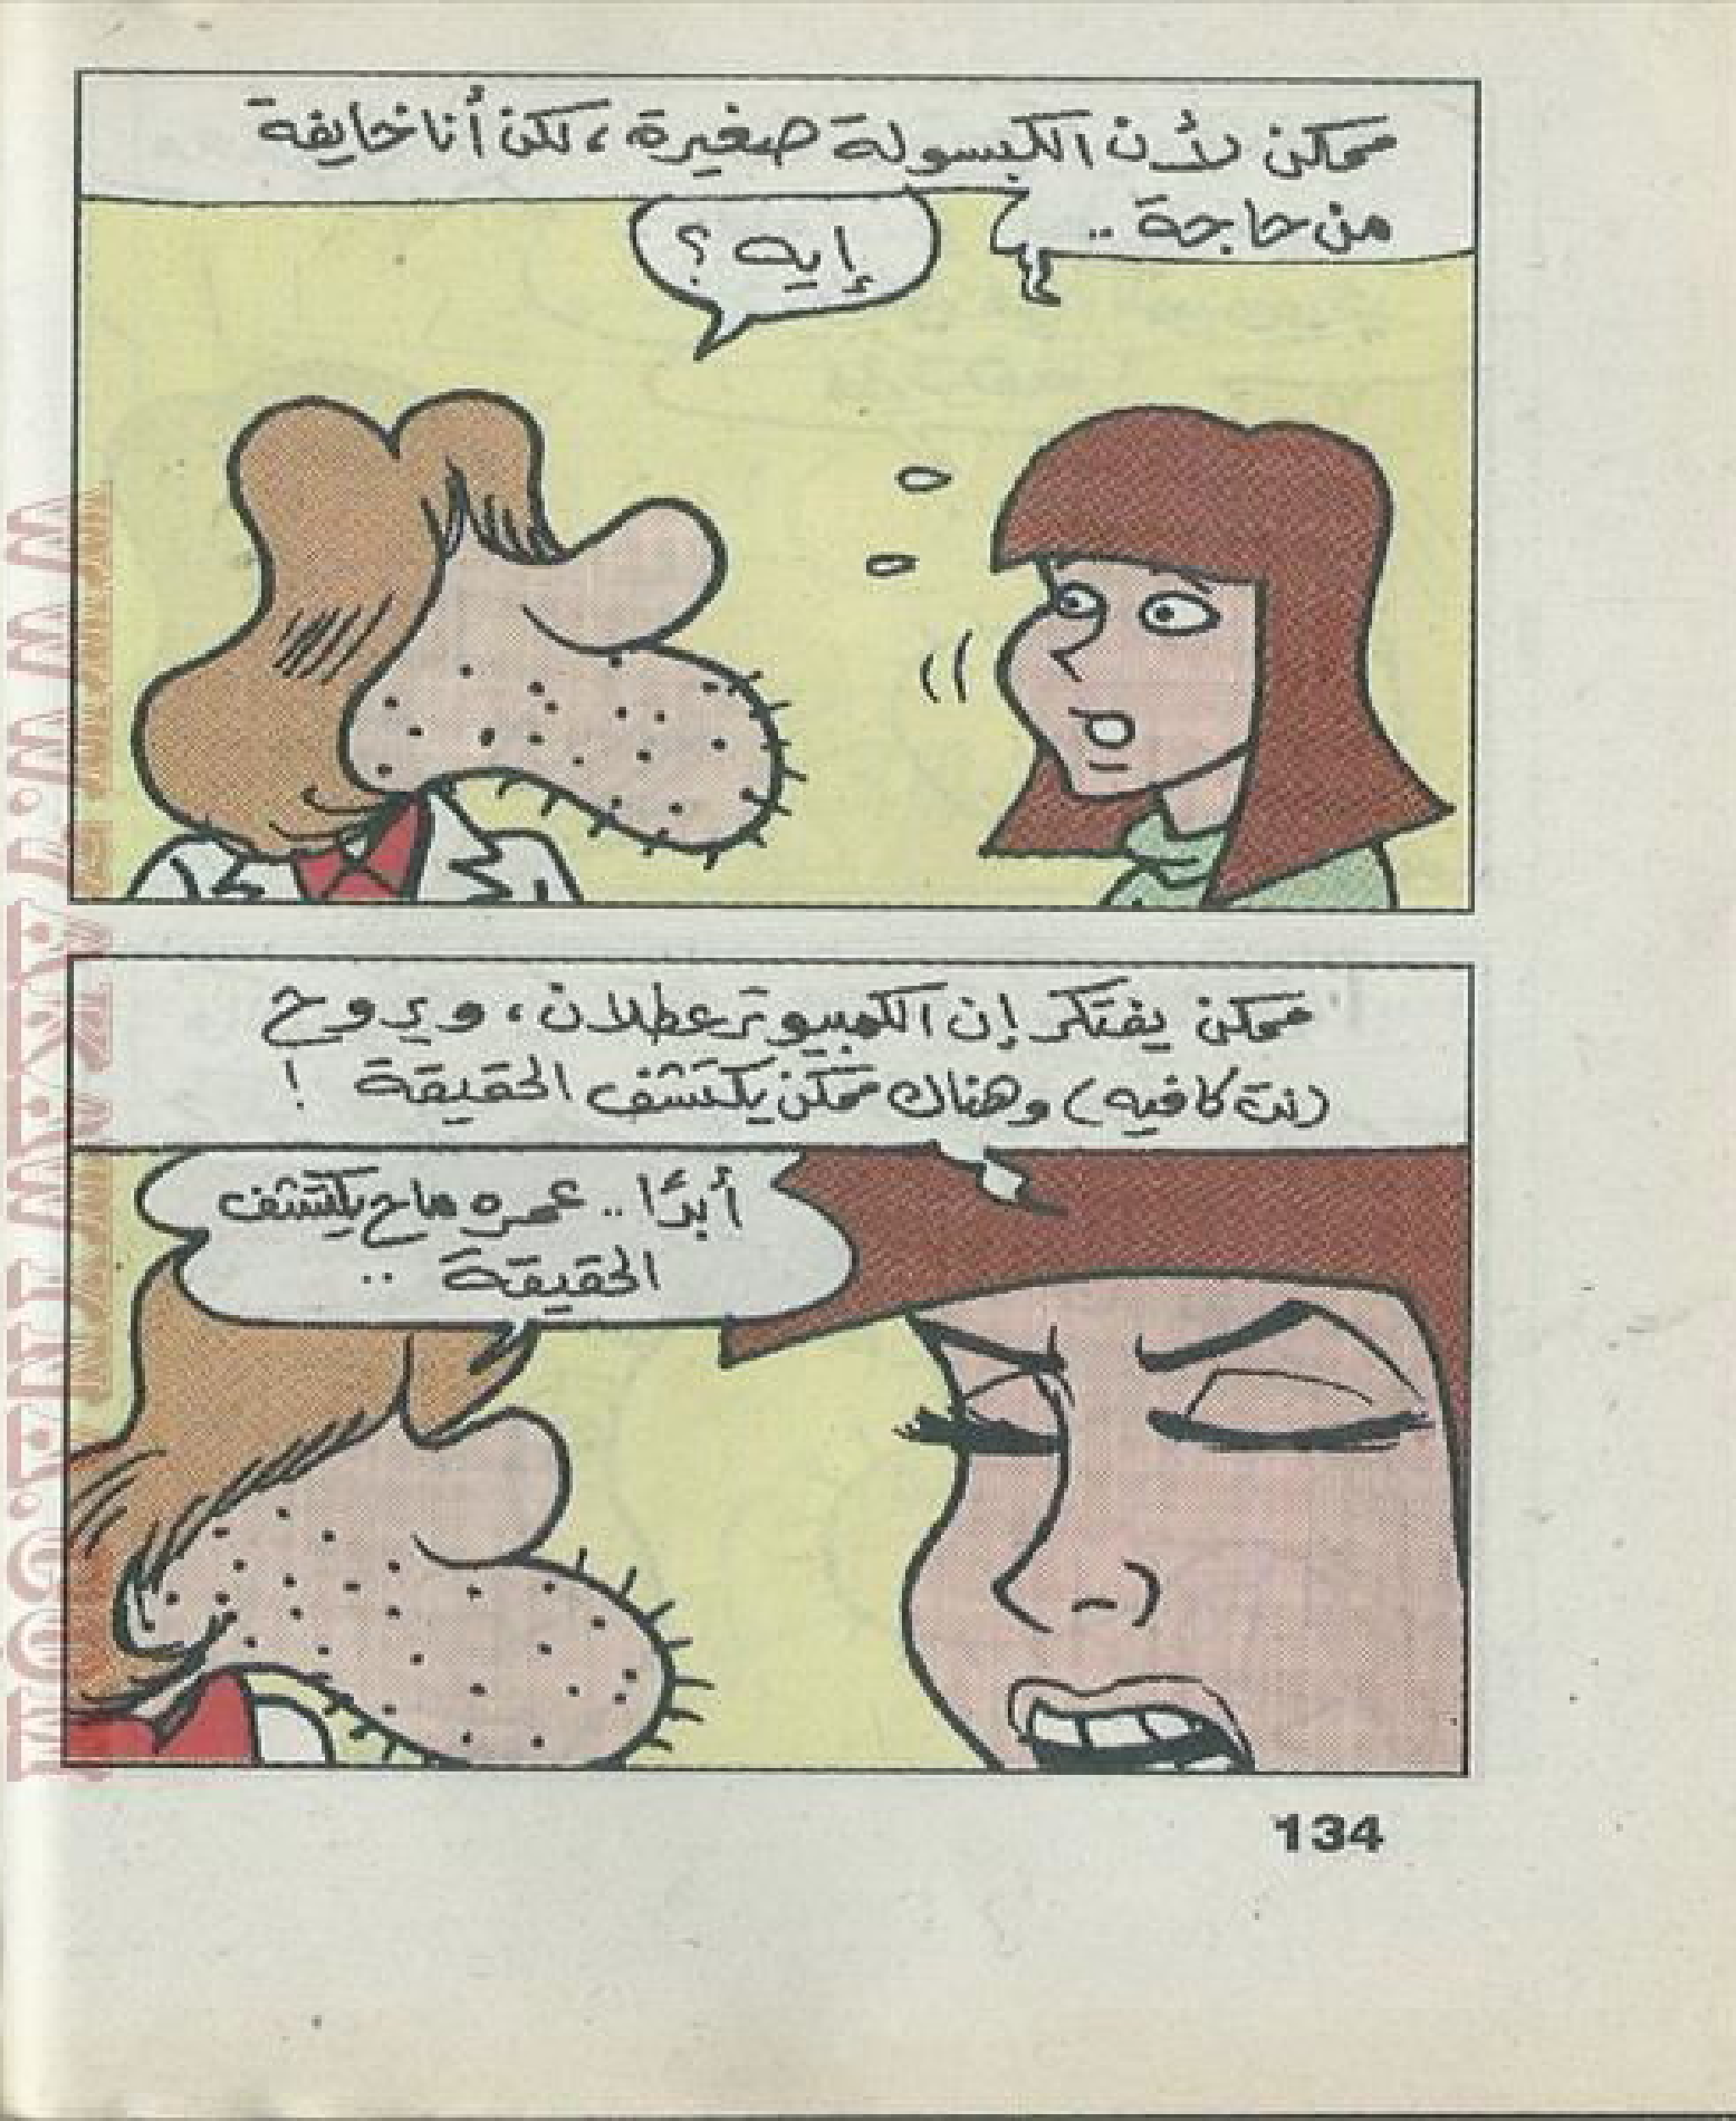 ممكن لأن الكبسولة صغيرة، لكن أنا خايفة
من حاجة ..
إيه ؟
ممكن يفتكر إن الكمبيوتر عطلان، ويروح
(نت كافيه) وهناك ممكن يكتشف الحقيقة !
أبدًا .. عمره ماح يكتشف
الحقيقة ..
134